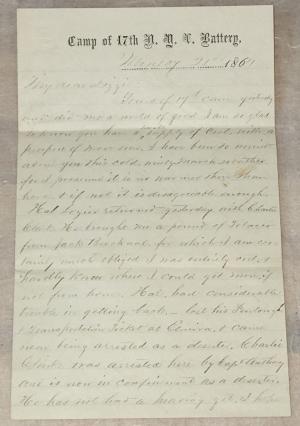 Camp of 17th N. Y. V. Battery.
186
My dear Lizzie
Yours of 19th came yesterday
did me a world of good. I am so glad
to know you have a supply of coal with a
prospect of more soon. I have been so
about you this cold, windy March weather
for I presume it is no warmer there than
here & if not it is disagreeable enough.
Hal Logier returned yesterday with Charlie
Clark. He brought me a pound of Tobacco
from Jack for which I am
certainly much obliged I was entirely out &
hardly know where I could get more, if
not from home. Hal, had considerable
trouble in getting back - lost his Furlough
& Transportation Ticket at Geneva, & came
near being arrested as a deserter. Charlie
Clark was arrested here by Capt Anthony
and is now in confinement as a deserter.
He has not had a hearing yet. I hope